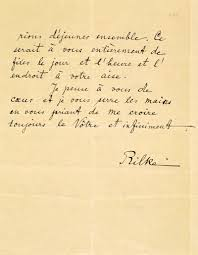 rions déjeuner ensemble. Ce
serait à vous entièrement de
fixer le jour et l'heure et l'
endroit à votre aise.
Je pense à vous de
cœur et je vous serre les mains
en vous priant de me croire
toujours le Vôtre et infiniment
Rilke